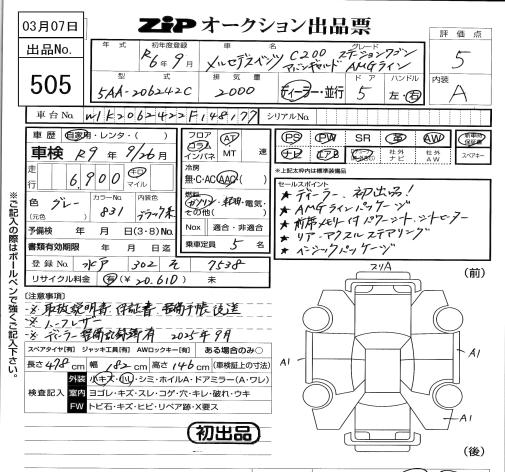 03月07日
ZIP オークション出品票
出品No.
505
年式 初年度登録 車名 グレード
R6年9月 メルセデスベンツ C200 ステーションワゴン アバンギャルド AMGライン
評価点
5
型式 排気量 ドア ハンドル
5AA-206242C 2000 ディーラー・並行 5 左・右
内装
A
車台No. W1K2062422F148177 シリアルNo.
車歴 自家用・レンタ・( )
車検 R9年9/26月
走行 6,900 キロ マイル
色 グレー (元色) カラーNo. 831 内装色 ブラック系
予備検査 年 月 日(3・8)No.
書類有効期限 年 月 日迄
登録No. 水戸 302 そ 7538
リサイクル料金 有(¥20.610) 未
フロア コラム インパネ AT MT 速
冷房 無・C・AC・AAC( )
燃料 ガソリン・軽油・電気・その他( )
Nox 適合・非適合
乗車定員 5 名
PS PW SR 革 AW 新車時保証書
ナビ エアB 社外ナビ 社外AW スペアキー
*上記太枠内は標準装備品
セールスポイント
★ ディーラー 初出品!
★ AMGラインパッケージ
★ 前席メモリー付パワーシート、シートヒーター
★ リア・アクスルステアリング
★ ベーシックパッケージ
※ご記入の際はボールペンで強くご記入下さい。
[注意事項]
※ 取扱説明書 保証書 整備手帳 後送
※ ルーフレザー
※ ディーラー整備記録簿有 2025年9月
スペアタイヤ[有] ジャッキ工具[有] AWロックキー[有] ある場合のみ○
長さ478cm 幅182cm 高さ146cm (車検証上の寸法)
検査記入
外装 小キズ・凹・シミ・ホイルA・ドアミラー(A・ワレ)
室内 ヨゴレ・キズ・スレ・コゲ・穴・キレ・破れ・ウキ
FW トビ石・キズ・ヒビ・リペア跡・X要ス
初出品
(前)
A1
A1
(後)